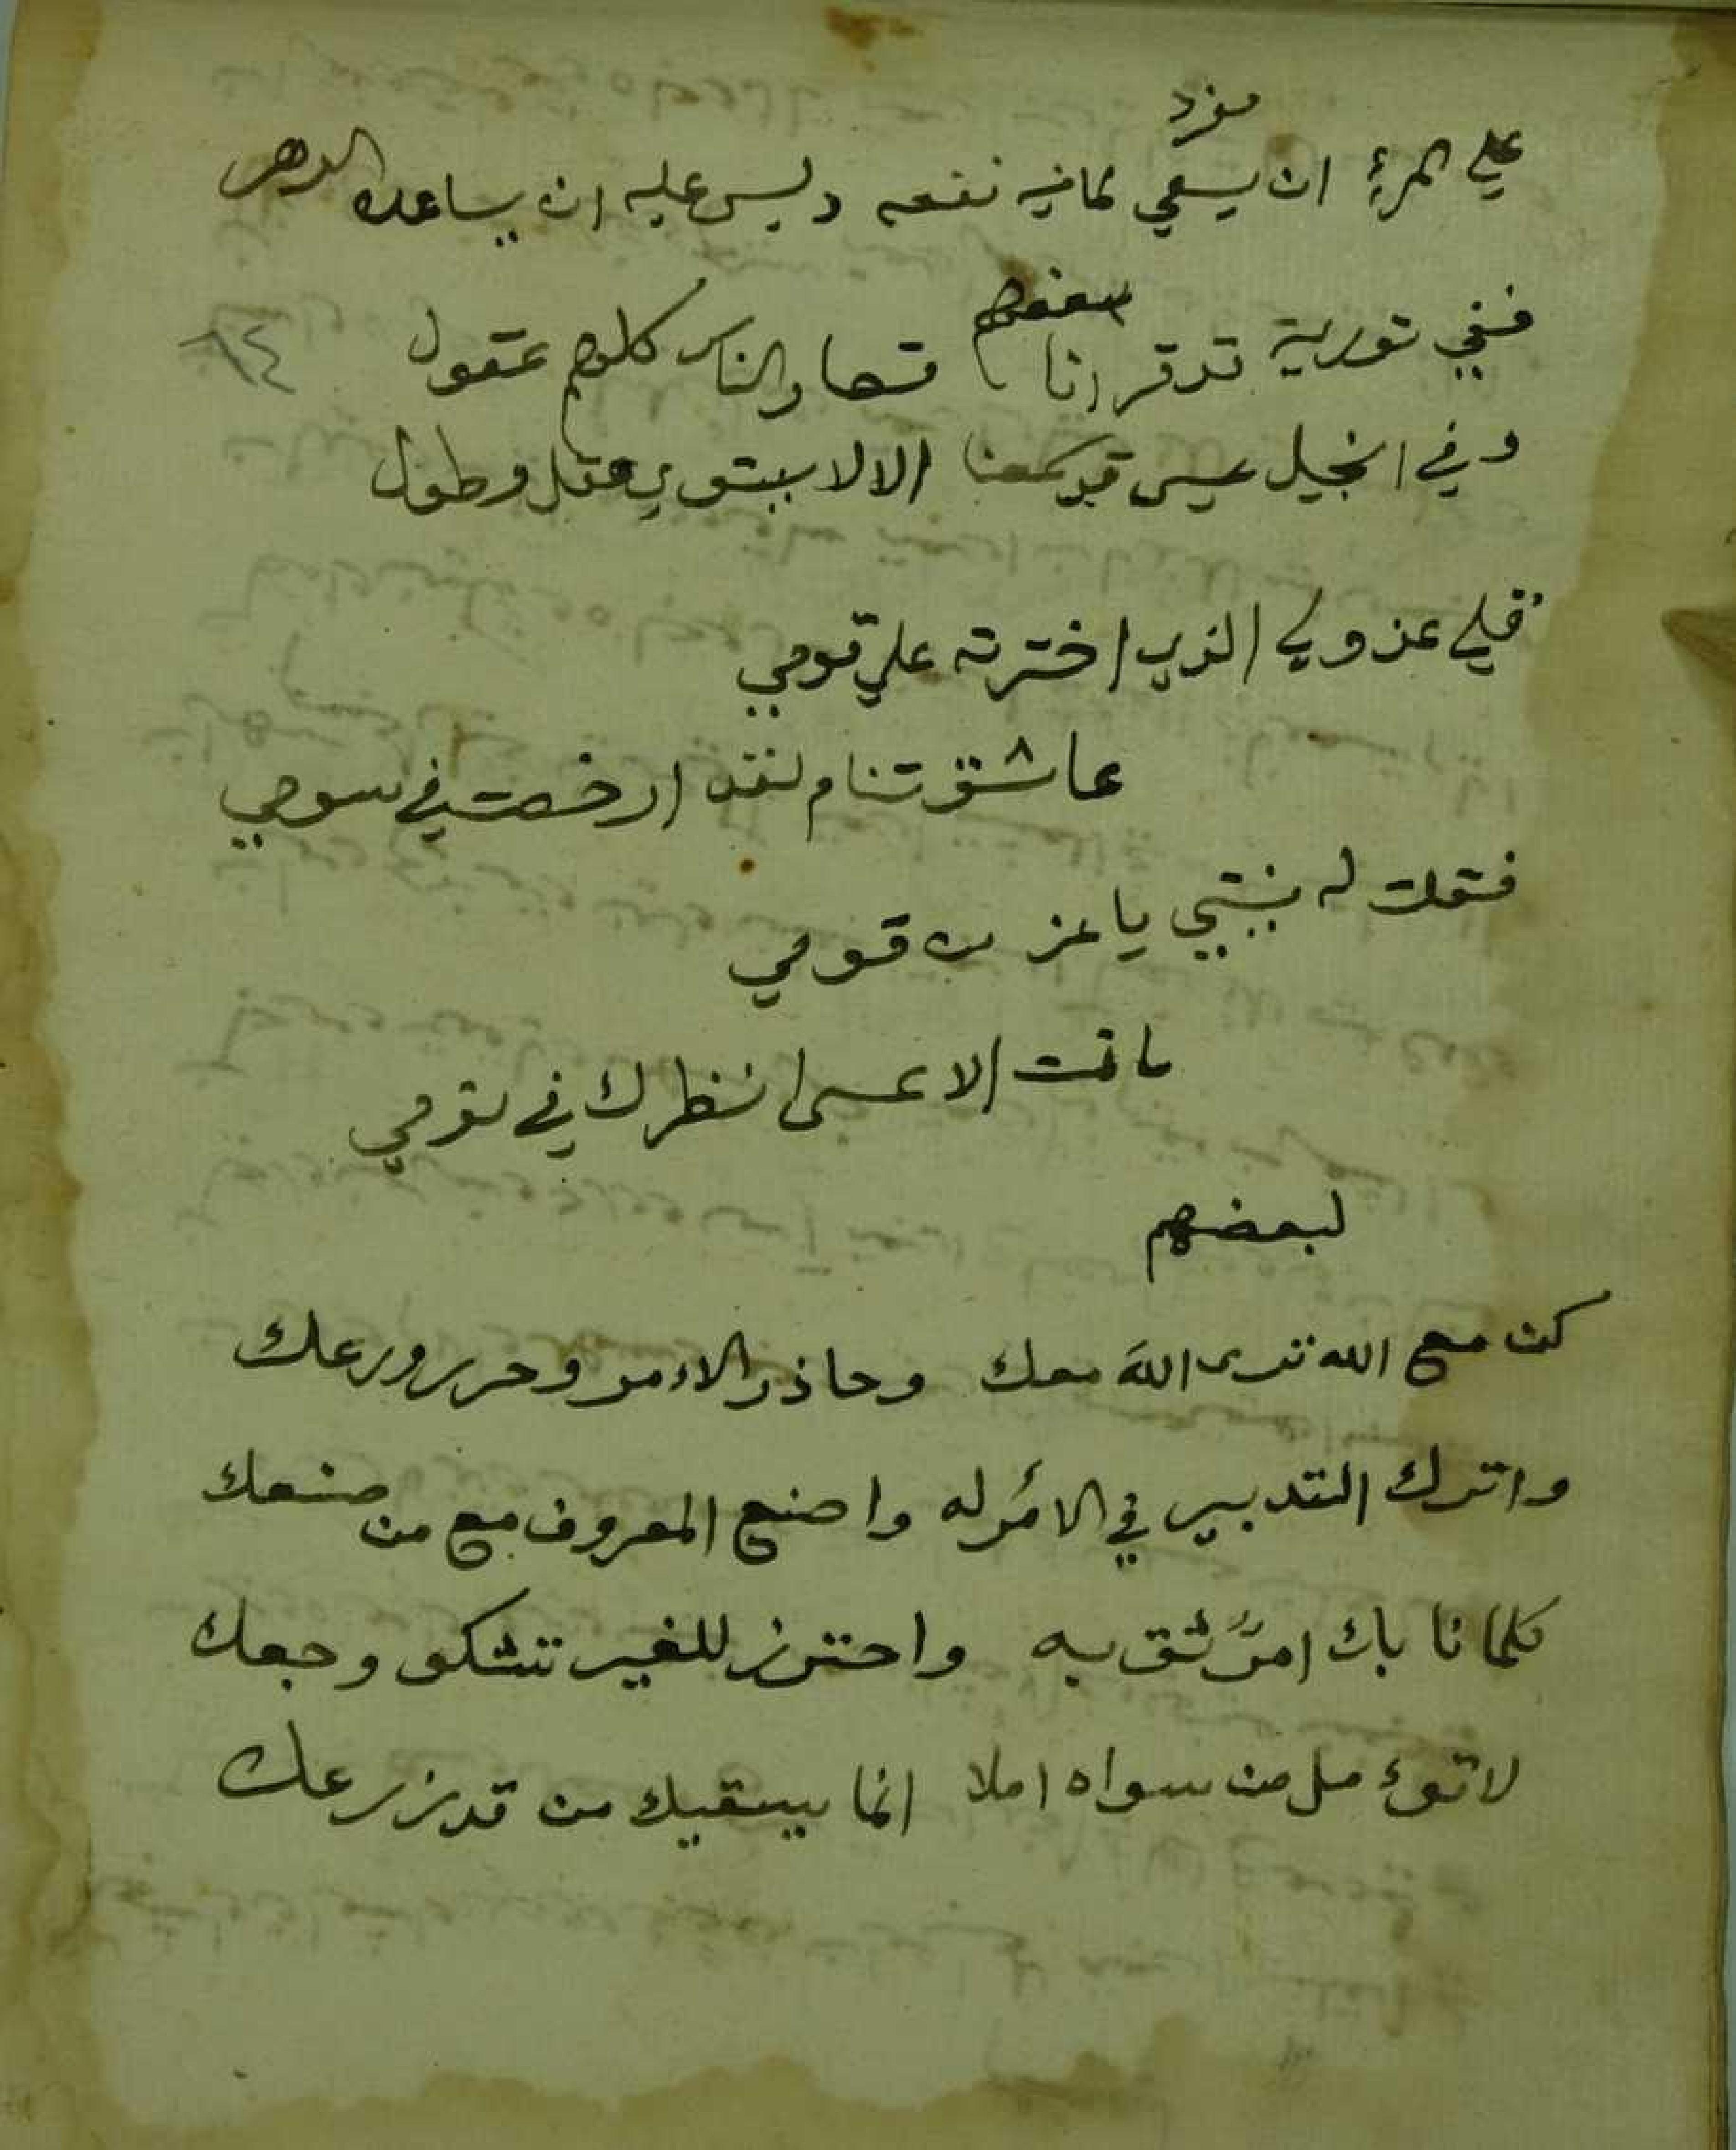 مفرد
علي المرئ ان يسعي لما فيه نفعه وليس عليه ان يساعده الدهر
بعضهم
ففي تورية قد قرانا قصار الناس كلهم عقول
وفي انجيل عيسى قد سمعنا الا لا يستوي عقل وطول
قلي عذولي الذي اخترته علي قومي
عاشق تنام لقد ارخصت في سومي
فقلت له ينبتي يا عز من قومي
ما نمت الا عسى انظرك في نومي
لبعضهم
كن مع الله ترى الله معك وحاذر الامر وحرر ورعك
واترك التدبير في الامر له واصنع المعروف مع من صنعك
كلما نابك امرٌ ثق به واحترز للغير تشكو وجعك
لا تؤمل من سواه املا انما يسقيك من قد زرعك